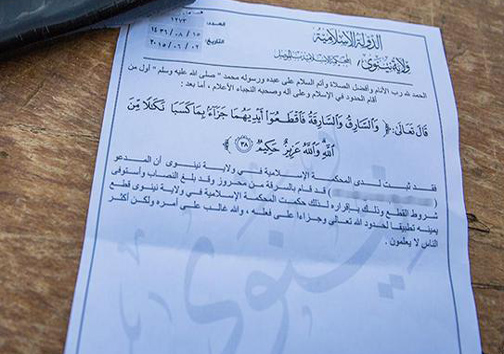 الدولة الإسلامية
ولاية نينوى
المحكمة الإسلامية
العدد: ١٢٧٣
١٤٣٦/٠٨/١٥
التاريخ: ٢٠١٥/٠٦/٠٢
الحمد لله رب الأنام وأفضل الصلاة وأتم السلام على عبده ورسوله محمد " صلى الله عليه وسلم " أول من
أقام الحدود في الإسلام وعلى آله وصحبه النجباء الأعلام ، أما بعد :
قَالَ تَعَالَىٰ: ﴿ وَٱلسَّارِقُ وَٱلسَّارِقَةُ فَٱقْطَعُوٓا۟ أَيْدِيَهُمَا جَزَآءًۢ بِمَا كَسَبَا نَكَـٰلًا مِّنَ
ٱللَّهِ وَٱللَّهُ عَزِيزٌ حَكِيمٌ ﴿٣٨﴾
فقد ثبت لدى المحكمة الإسلامية في ولاية نينوى أن المدعو
( ) قد قام بالسرقة من محروز وقد بلغ النصاب واستوفى
شروط القطع وذلك بإقراره لذلك حكمت المحكمة الإسلامية في ولاية نينوى قطع
يمينه تطبيقا لحدود الله تعالى وجزاءا على فعله ، والله غالب على أمره ولكن أكثر
الناس لا يعلمون .
نينوى